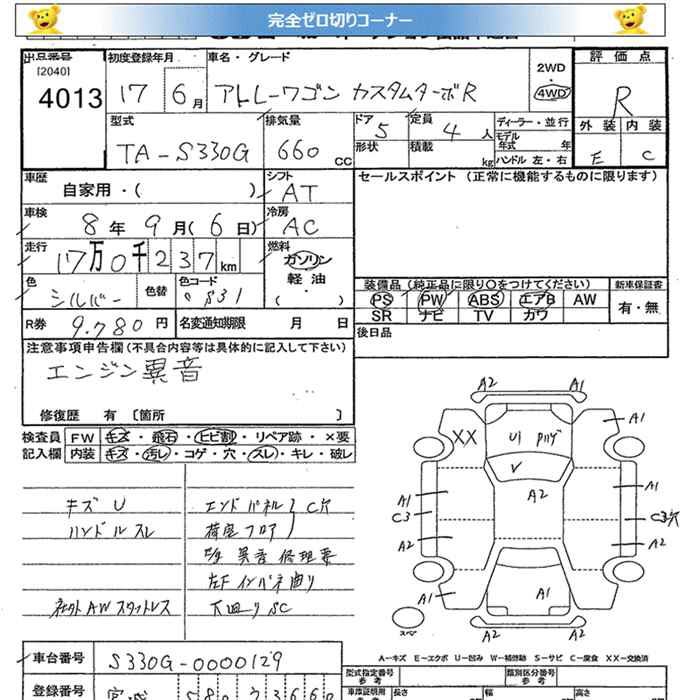 完全ゼロ切りコーナー
出品番号 初度登録年月 車名・グレード 2WD 評価点
[2040] ・
4013 17 6月 アトレーワゴン カスタムターボR 4WD R
型式 排気量 ドア 定員 ディーラー・並行 外装 内装
TA-S330G 660cc 5 4人 モデル年式 年 E C
形状 積載 kg ハンドル 左・右
車歴 シフト セールスポイント (正常に機能するものに限ります)
自家用・( ) AT
車検 冷房
8年 9月(6日) AC
走行 燃料
17万0千237km ガソリン
色 色替 色コード 軽油 装備品 (純正品に限り○をつけてください) 新車保証書
シルバー S31 ( ・ ) PS PW ABS エアB AW 有・無
SR ナビ TV カワ
R券 9.780円 名変通知期限 月 日 後日品
注意事項申告欄 (不具合内容等は具体的に記入して下さい)
エンジン異音
修復歴 有 〔箇所 〕
検査員 FW キズ・飛石・ヒビ割・リペア跡・×要
記入欄 内装 キズ・汚レ・コゲ・穴・スレ・キレ・破レ
キズ U エンドパネル C穴
ハンドルスレ 荷室フロア
異音 修理要
左F インパネ曲り
社外AWスタットレス 下回りSC
A2 A1
XX U1 A1
V
A2
A1 A1
C3 C3穴
A2 A2
A1 A1
スペア A2 A2
A-キズ E-エクボ U-凹み W-補修跡 S-サビ C-腐食 XX-交換済
車台番号 S330G-0000129 型式指定番号 参考 類別区分番号 参考
登録番号 580 車庫証明用 長さ 幅 高さ